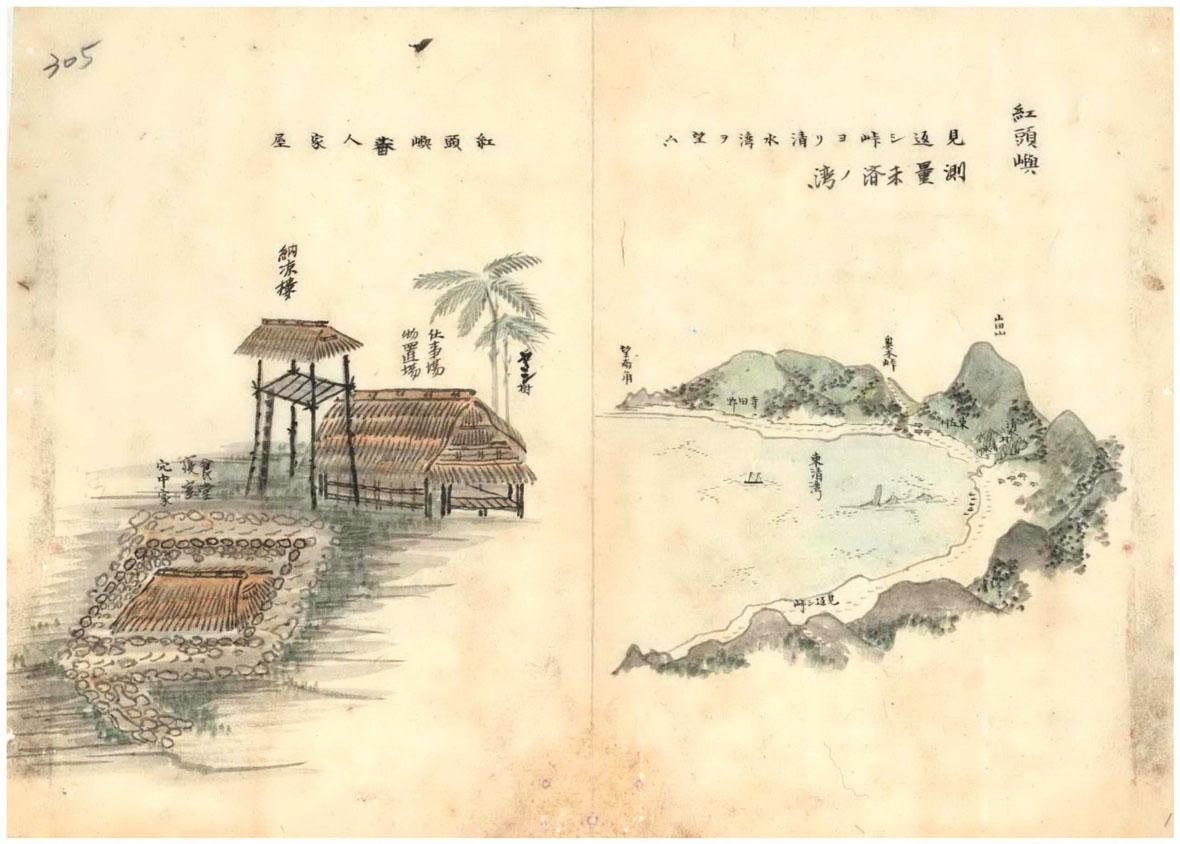 紅頭嶼
見返シ峠ヨリ清水湾ヲ望ム
測量未済ノ湾
山田山
望南角
寺田野
東清湾
見返シ峠
305
紅頭嶼蕃人家屋
納凉樓
仕事場
物置場
ヤシ樹
食堂
寝室
穴中家